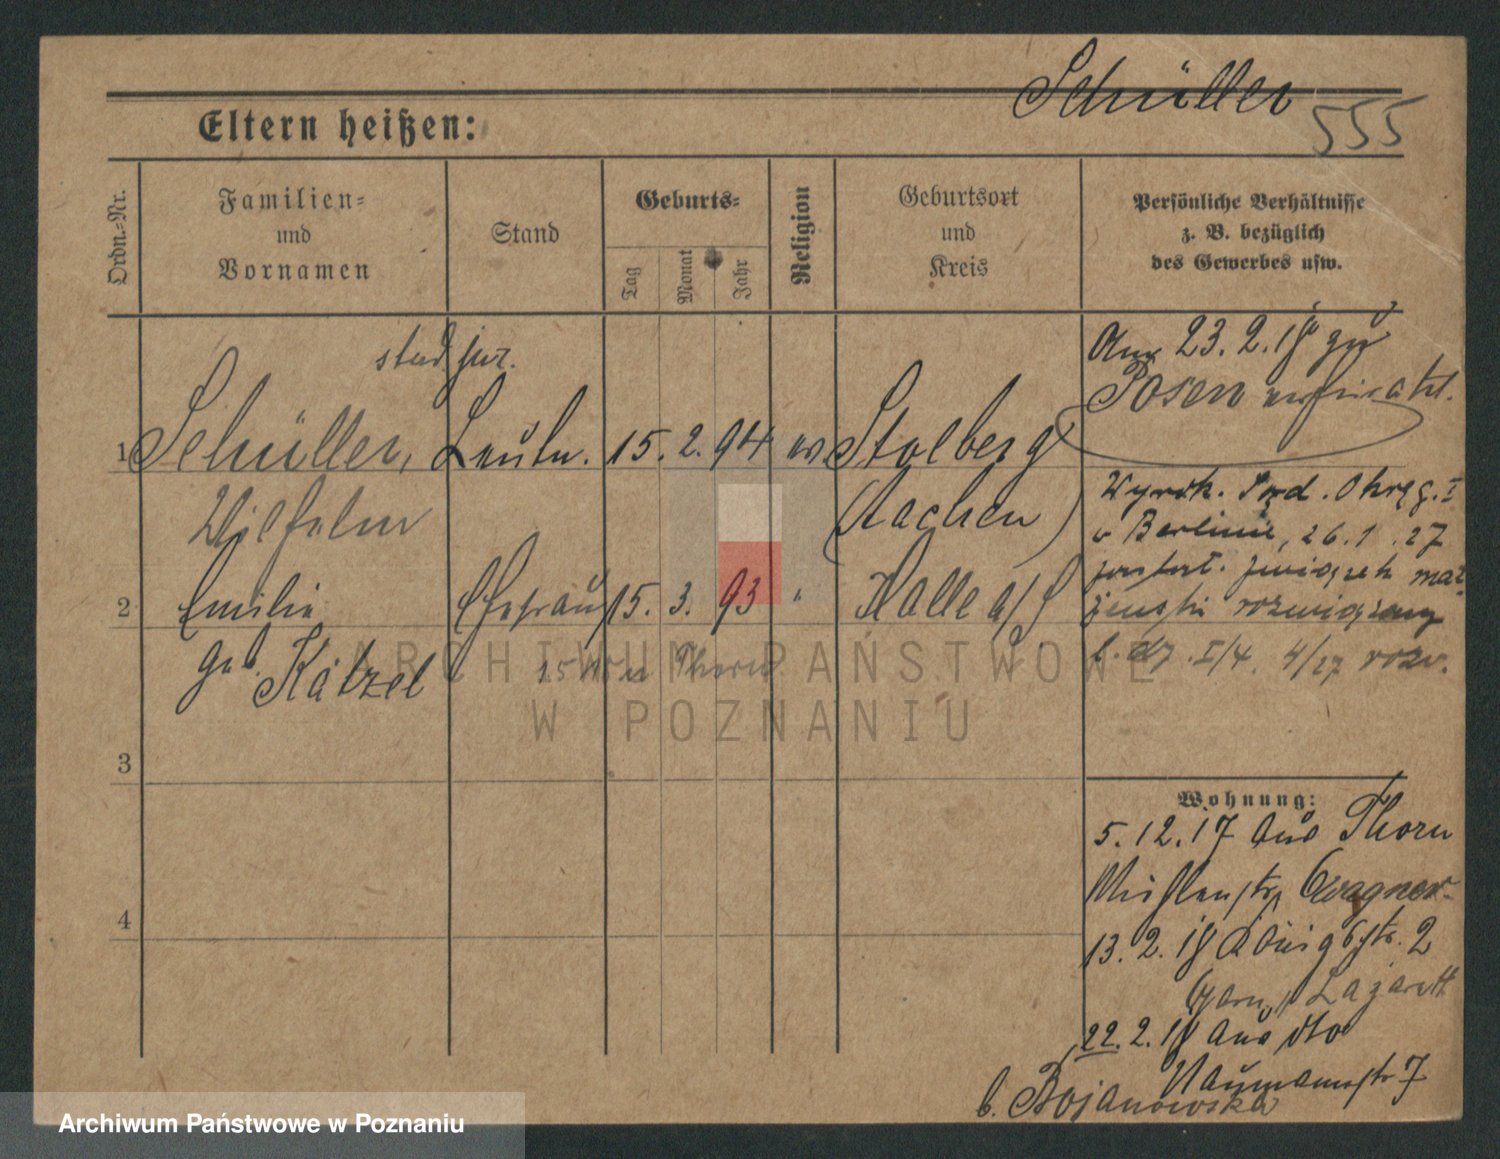 Schüller
555
Eltern heißen:
Ordn.-Nr.
Familien-
und
Vornamen
Stand
Geburts-
Tag
Monat
Jahr
Religion
Geburtsort
und
Kreis
Persönliche Verhältnisse
z. B. bezüglich
des Gewerbes usw.
stud jur.
1 Schüller, Leutn. 15. 2. 94 ev Stolberg
Wilhelm (Aachen)
2 Emilie Ehefrau 15. 3. 93 " Halle a/S
geb. Kätzel
Thorn
3
4
Am 23. 2. 18 zu
Posen verheiratet.
Wyrok. Sąd. Okręg. I
w Berlinie, 26. 1. 27
został. związek mał-
żeński rozwiązany
l. dz. I/4. 4/27 rozw.
Wohnung:
5. 12. 17 aus Thorn
Mühlenstr Wagner
13. 2. 18 Königstr. 2
Garn. Lazarett
22. 2. 18 aus dto
Naumannstr 7
b. Bojanowska
ARCHIWUM PAŃSTWOWE
W POZNANIU
Archiwum Państwowe w Poznaniu